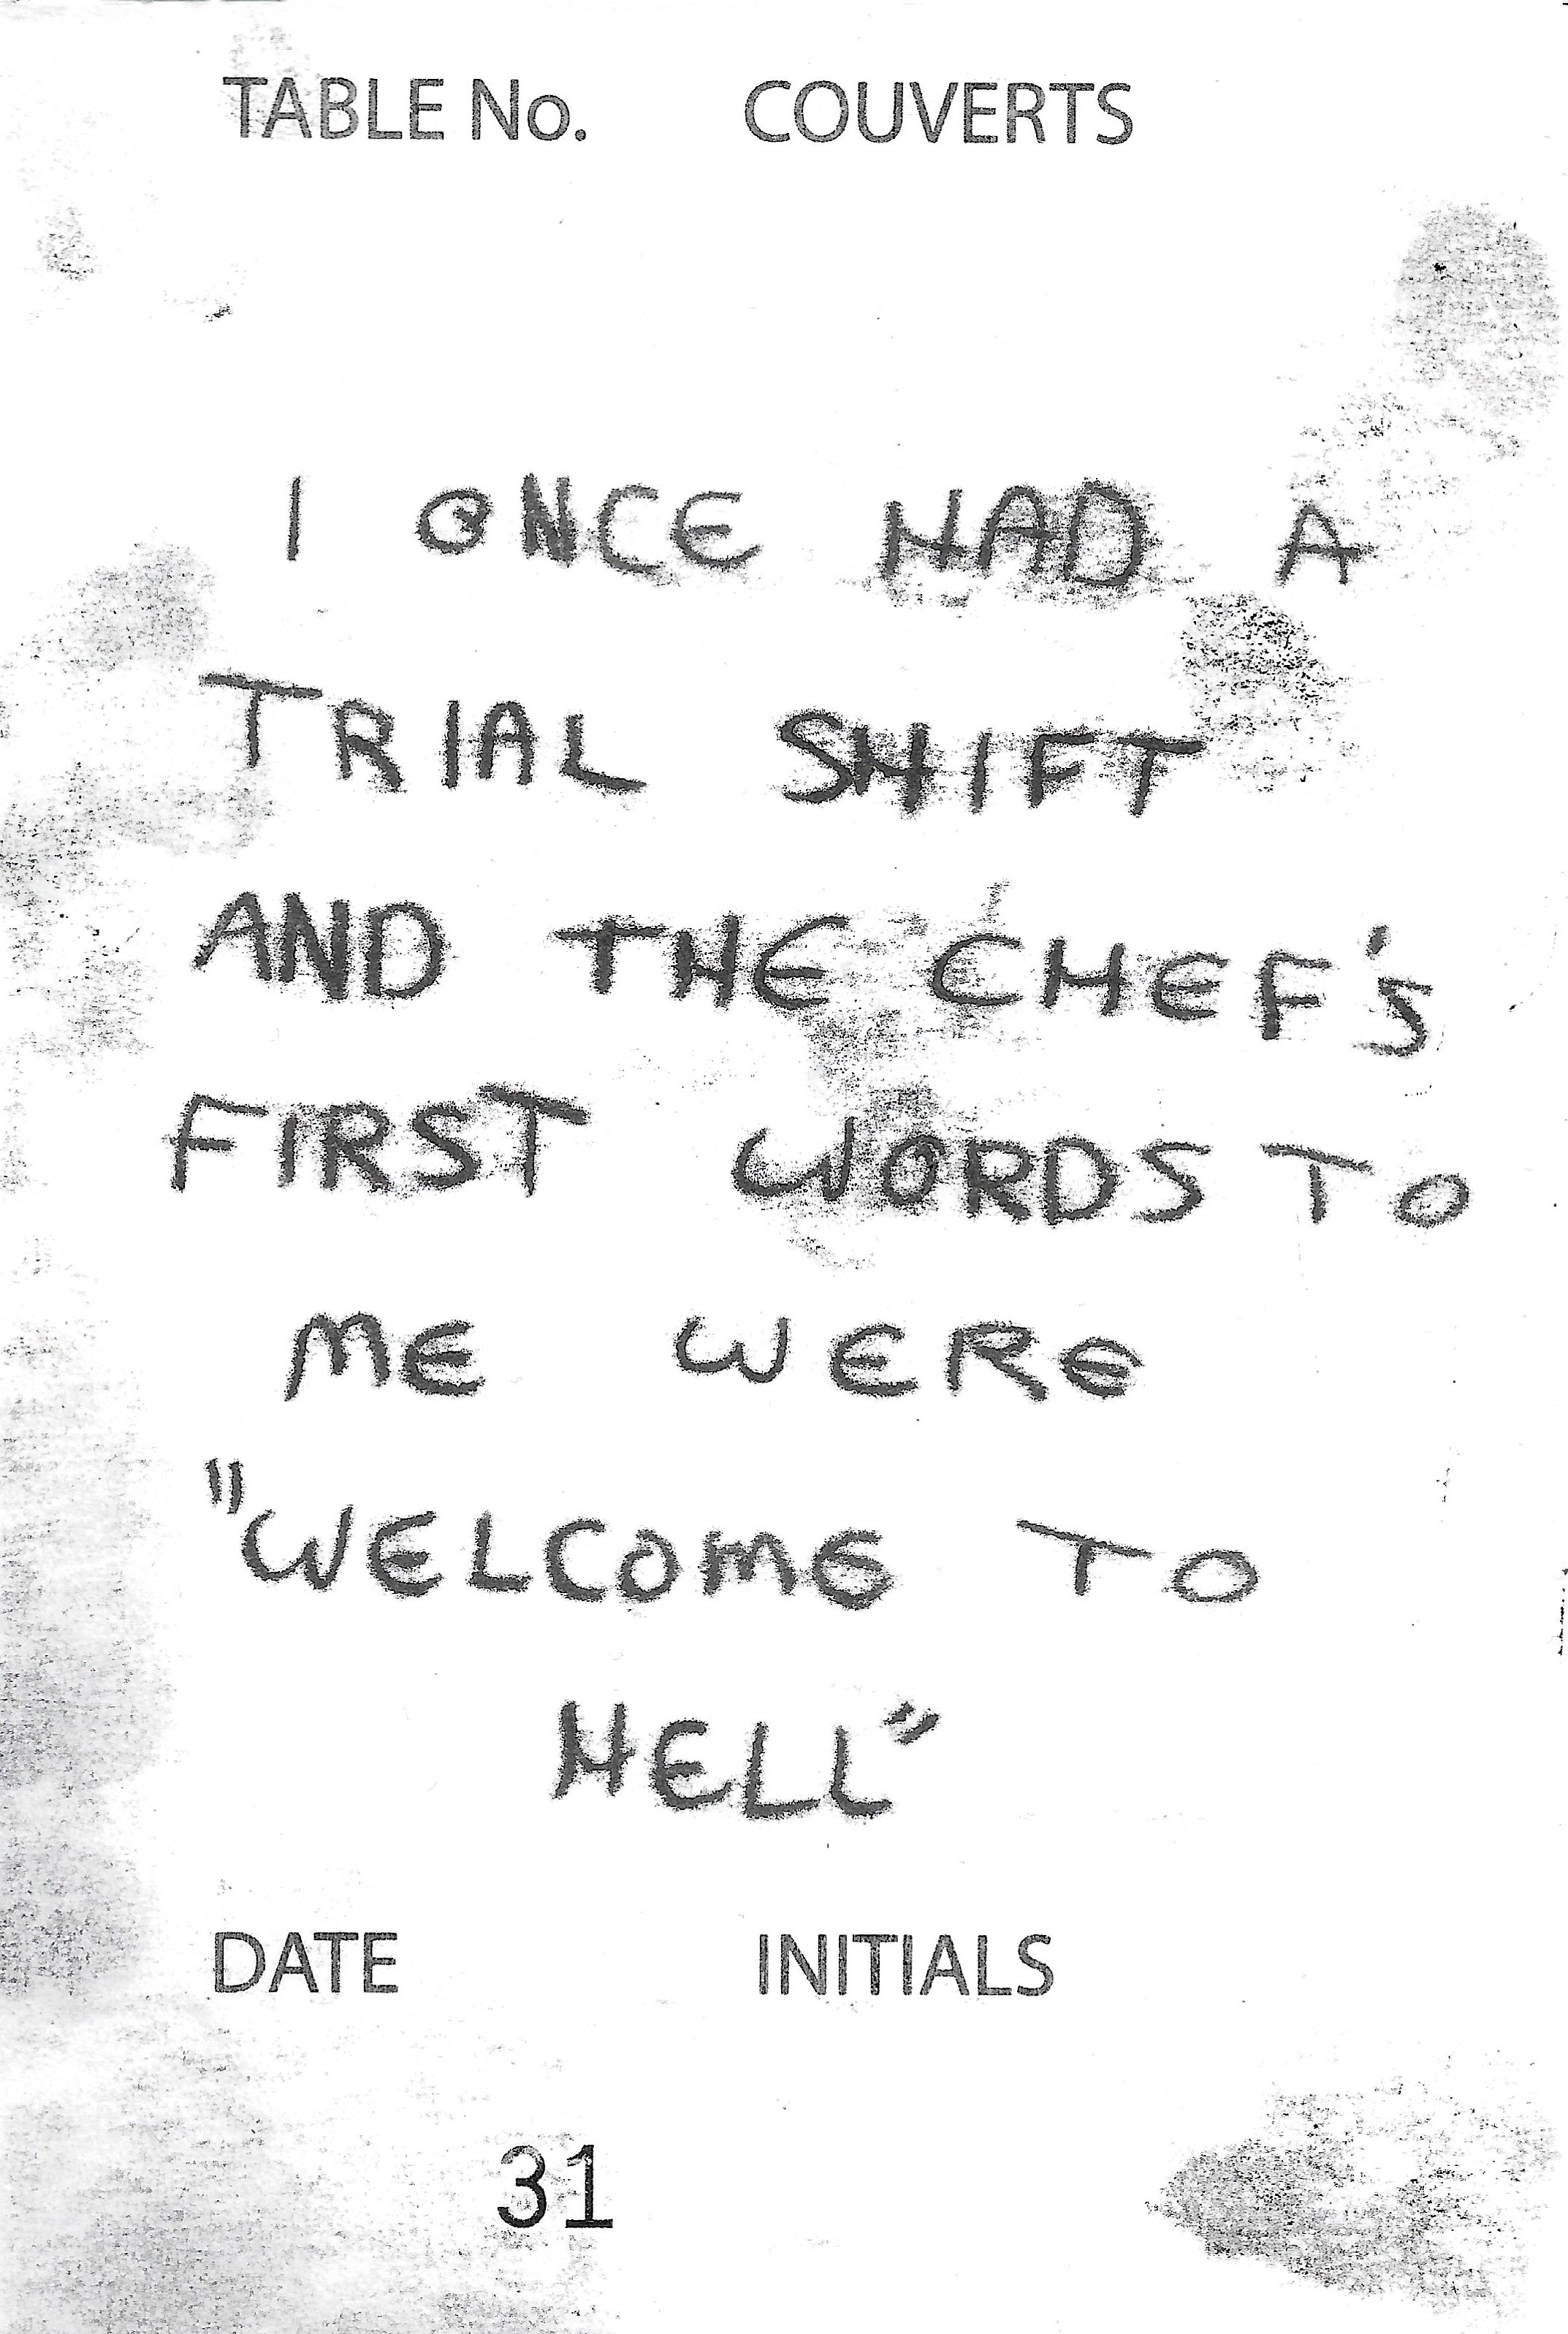 TABLE No. COUVERTS
I ONCE HAD A
TRIAL SHIFT
AND THE CHEF'S
FIRST WORDS TO
ME WERE
"WELCOME TO
HELL"
DATE INITIALS
31